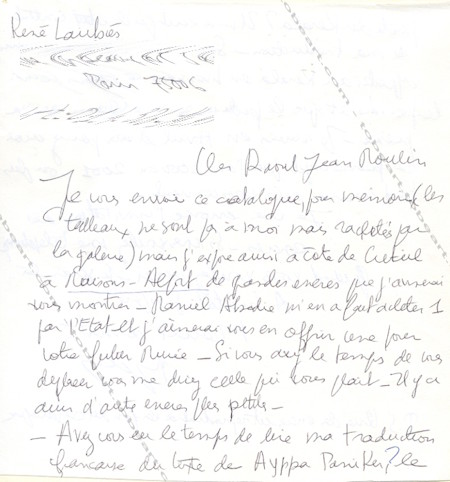 René Laubiès
Paris 75006
Cher Raoul Jean Moulin
Je vous envoie ce catalogue, pour mémoire (les
tableaux ne sont pas à moi mais rachetés par
la galerie) mais j'expose aussi à côté de Créteil
à Maisons-Alfort de grandes encres que j'aimerai
vous montrer - Manuel m'en a fait acheter 1
par l'Etat et j'aimerai vous en offrir une pour
votre futur Musée - Si vous avez le temps de vous
déplacer vous me direz celle qui vous plait - Il y a
aussi d'autres encres plus petites -
- Avez vous eu le temps de lire ma traduction
française du texte de Ayppa Paniker ? le